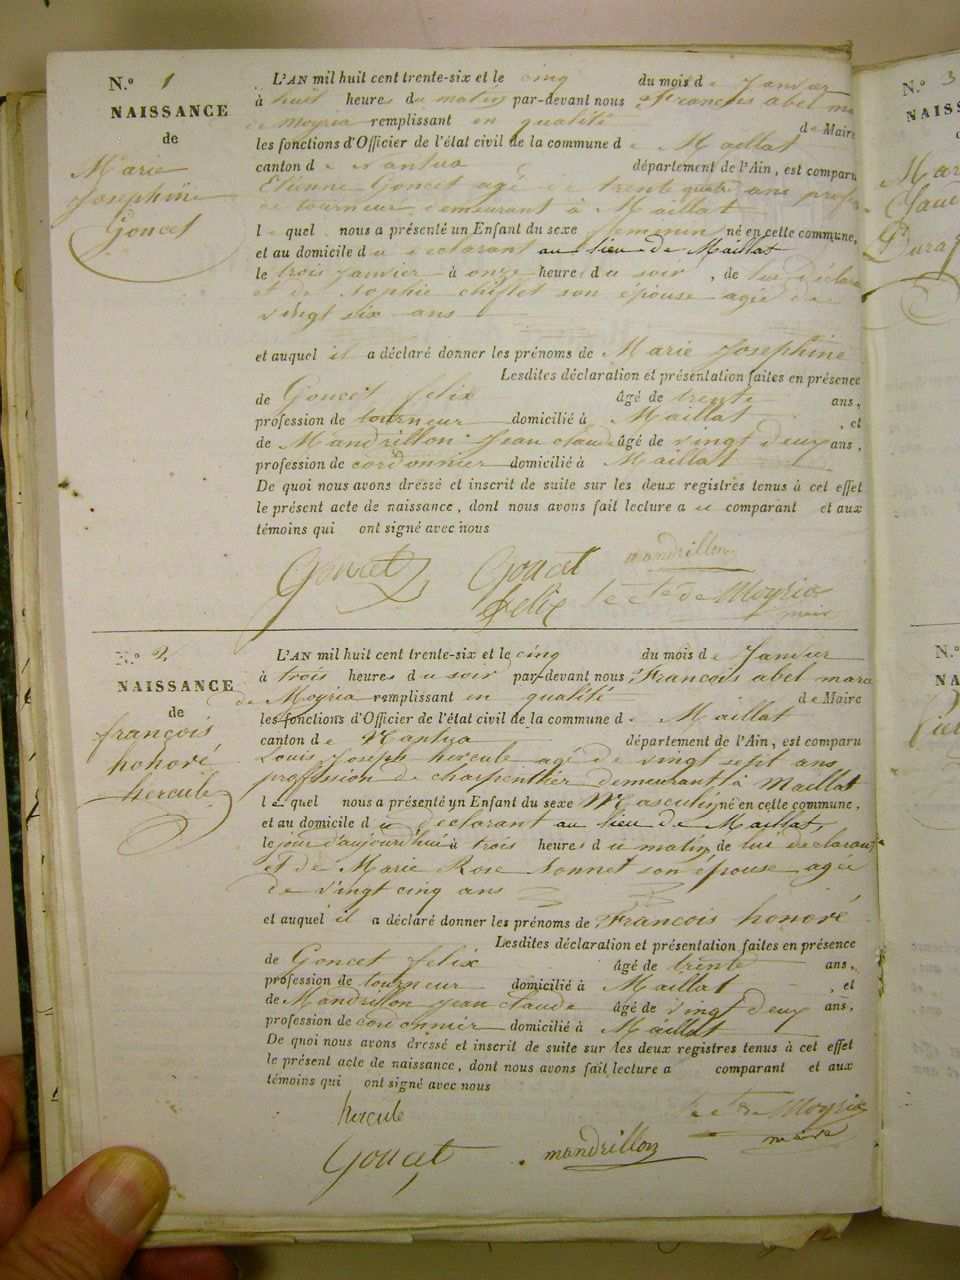 N.º 1
NAISSANCE
de
Marie
Josephine
Goncet
L'AN mil huit cent trente-six et le cinq du mois de Janvier
à huit heures du matin par-devant nous François abel marc
de Moyria remplissant en qualité de Maire
les fonctions d'Officier de l'état civil de la commune de Maillat
canton de Nantua département de l'Ain, est comparu
Etienne Goncet agé de trente quatre ans profession
de tourneur demeurant à Maillat
lequel nous a présenté un Enfant du sexe femenin né en cette commune,
et au domicile du declarant au lieu de Maillat
le trois Janvier à onze heures du soir, de lui déclarant
et de Sophie chiflet son épouse agée de
vingt six ans
et auquel il a déclaré donner les prénoms de Marie Josephine
Lesdites déclaration et présentation faites en présence
de Goncet felix âgé de trente ans,
profession de tourneur domicilié à Maillat, et
de Mandrillon Jean claude âgé de vingt deux ans,
profession de cordonnier domicilié à Maillat
De quoi nous avons dressé et inscrit de suite sur les deux registres tenus à cet effet
le présent acte de naissance, dont nous avons fait lecture au comparant et aux
témoins qui ont signé avec nous
Goncet Goncet mandrillon
felix le cte de Moyria
maire
N.º 2
NAISSANCE
de
françois
honoré
hercule
L'AN mil huit cent trente-six et le cinq du mois de Janvier
à trois heures du soir par-devant nous François abel marc
de Moyria remplissant en qualité de Maire
les fonctions d'Officier de l'état civil de la commune de Maillat
canton de Nantua département de l'Ain, est comparu
Louis Joseph hercule agé de vingt sept ans
proffession de charpentier demeurant à Maillat
lequel nous a présenté un Enfant du sexe Masculin né en cette commune,
et au domicile du declarant au lieu de Maillat,
le jour d'aujourd'hui à trois heures du matin de lui declarant
et de Marie Rose Sonnet son épouse agée
de vingt cinq ans
et auquel il a déclaré donner les prénoms de François honoré
Lesdites déclaration et présentation faites en présence
de Goncet felix âgé de trente ans,
profession de tourneur domicilié à Maillat, et
de Mandrillon Jean claude âgé de vingt deux ans,
profession de cordonnier domicilié à Maillat
De quoi nous avons dressé et inscrit de suite sur les deux registres tenus à cet effet
le présent acte de naissance, dont nous avons fait lecture a comparant et aux
témoins qui ont signé avec nous
hercule le cte de Moyria
Goncet mandrillon maire
N.º 3